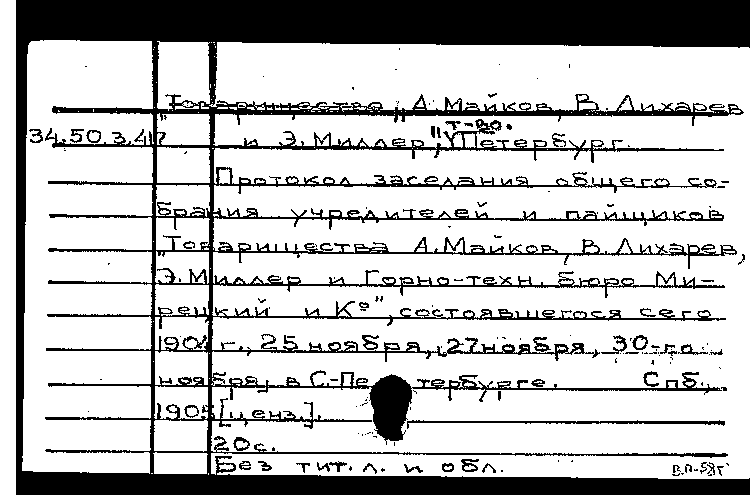 "Товарищество „А. Майков, В. Лихарев
34.50.3.417 и Э. Миллер", т-во. Петербург.
Протокол заседания общего со-
брания учредителей и пайщиков
„Товарищества А. Майков, В. Лихарев,
Э. Миллер и Горно-техн. бюро Ми-
рецкий и К°", состоявшегося сего
1904 г., 25 ноября, 27 ноября, 30-го
ноября, в С.-Петербурге. Спб.,
1905 [ценз.].
20 с.
Без тит. л. и обл.